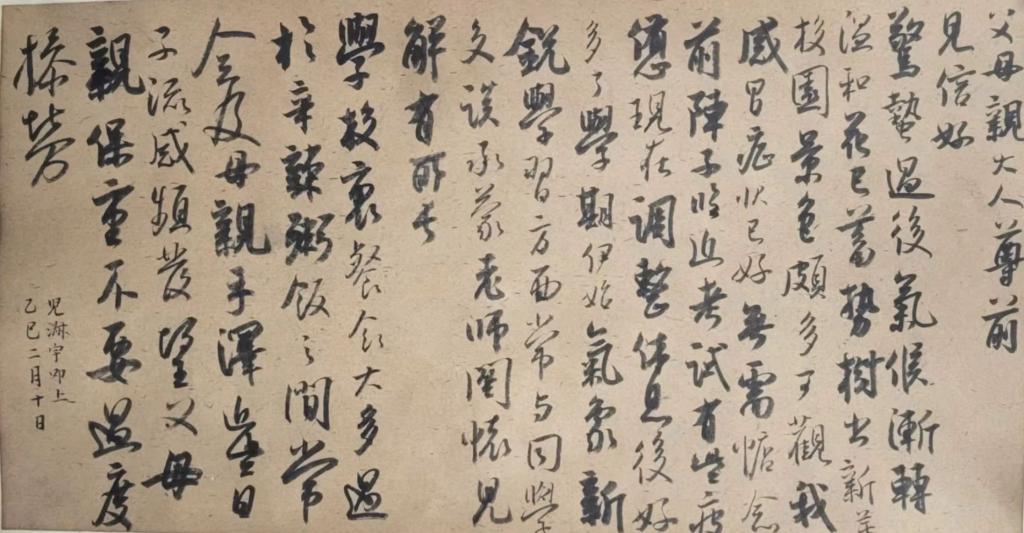 父母親大人尊前
見信好
驚蟄過後氣候漸轉
溫和花已蓄勢樹出新芽
校園景色頗多可觀我
感冒症狀已好無需惦念
前陣子臨近考試有些疲
憊現在調整休息後好
多了學期伊始氣象新
銳學習方面常与同學
交談承蒙老師關懷見
解有所長
學校裏餐食大多過
於辛辣粥飯之間常
念及母親手澤近些日
子流感頻發望父母
親保重不要過度
操勞
兒宇叩上
乙巳二月十日